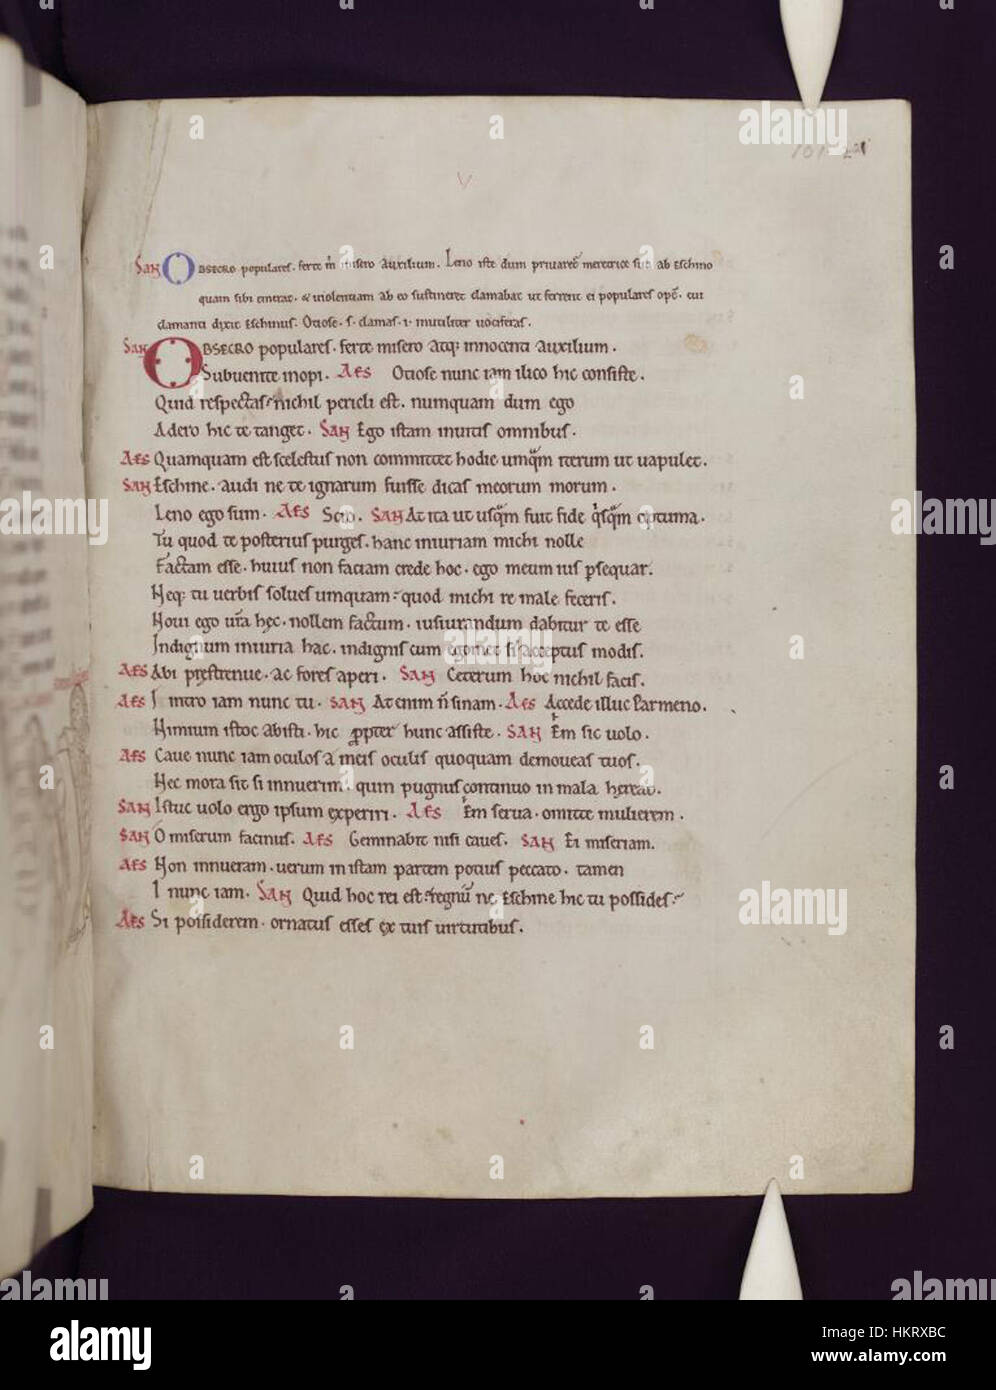 101
V
SAN OBSECRO populares. ferte m̄ misero auxilium. Leno iste dum priuaret meretrice sua ab Eschino
quam sibi emerat. & uiolentiam ab eo sustineret clamabat ut ferrent ei populares opē. cui
clamanti dixit Eschinus. Ociose. s. clamas. i. inutiliter uociferas.
SAN OBSECRO populares. ferte misero atq: innocenti auxilium.
Subuenite inopi. AES Ociose nunc iam ilico hic consiste.
Quid respectas? nichil pericli est. numquam dum ego
Adero hic te tanget. SAN Ego istam inuitis omnibus.
AES Quamquam est scelestus non committet hodie umq̄m iterum ut uapulet.
SAN Eschine. audi ne te ignarum fuisse dicas meorum morum.
Leno ego sum. AES Scio. SAN At ita ut usq̄m fuit fide q̄sq̄m optuma.
Tu quod te posterius purges. hanc iniuriam michi nolle
Factam esse. huius non faciam crede hoc. ego meum ius ꝑsequar.
Neq: tu uerbis solues umquam. quod michi re male feceris.
Noui ego ur̄a hęc. nollem factum. iusiurandum dabitur te esse
Indignum iniuria hac. indignis cum egomet sī acceptus modis.
AES Abi pręstrenue. ac fores aperi. SAN Ceterum hoc nichil facis.
AES I intro iam nunc tu. SAN At enim n̄ sinam. AES Accede illuc Parmeno.
Nimium istoc abisti. hic ꝓpter hunc assiste. SAN Em sic uolo.
AES Caue nunc iam oculos a meis oculis quoquam demoueas tuos.
Nec mora sit si innuerim. quin pugnus continuo in mala hęreat.
SAN Istuc uolo ergo ipsum experiri. AES Em serua. omitte mulierem.
SAN O miserum facinus. AES Geminabit nisi caues. SAN Ei miseriam.
AES Non innueram. uerum in istam partem potius peccato. tamen
I nunc iam. SAN Quid hoc rei est? regnū ne Eschine hic tu possides?
AES Si possiderem. ornatus esses ex tuis uirtutibus.
alamy
alamy
Image ID: HKRXBC
www.alamy.com